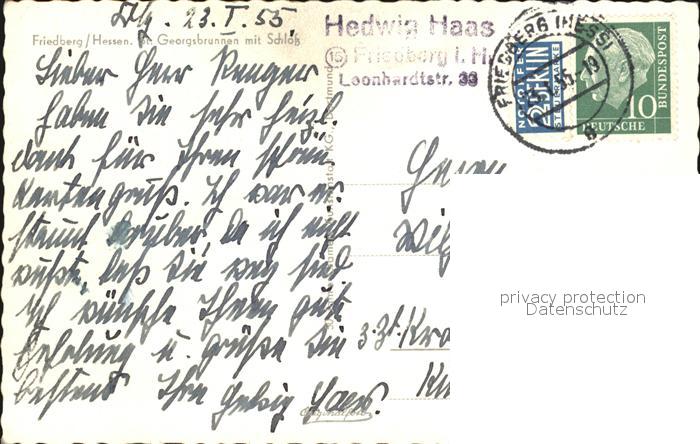 Fbg. 23.I.55.
Friedberg/Hessen. St. Georgsbrunnen mit Schloß
Hedwig Haas
(16) Friedberg i. H
Leonhardtstr. 33
FRIEDBERG (HESS)
NOTOPFER
2 BERLIN
STEUERMARKE
10
DEUTSCHE BUNDESPOST
Lieber Herr
haben Sie sehr herzl.
Dank für Ihren schön.
Kartengruß. Ich war er-
staunt darüber, da ich nicht
wußte, daß Sie weg sind.
Ich wünsche Ihnen gute
Erholung u. grüße Sie
bestens Ihre Hedwig Haas.
Herrn
Wilh
z.Zt. Kra
privacy protection
Datenschutz